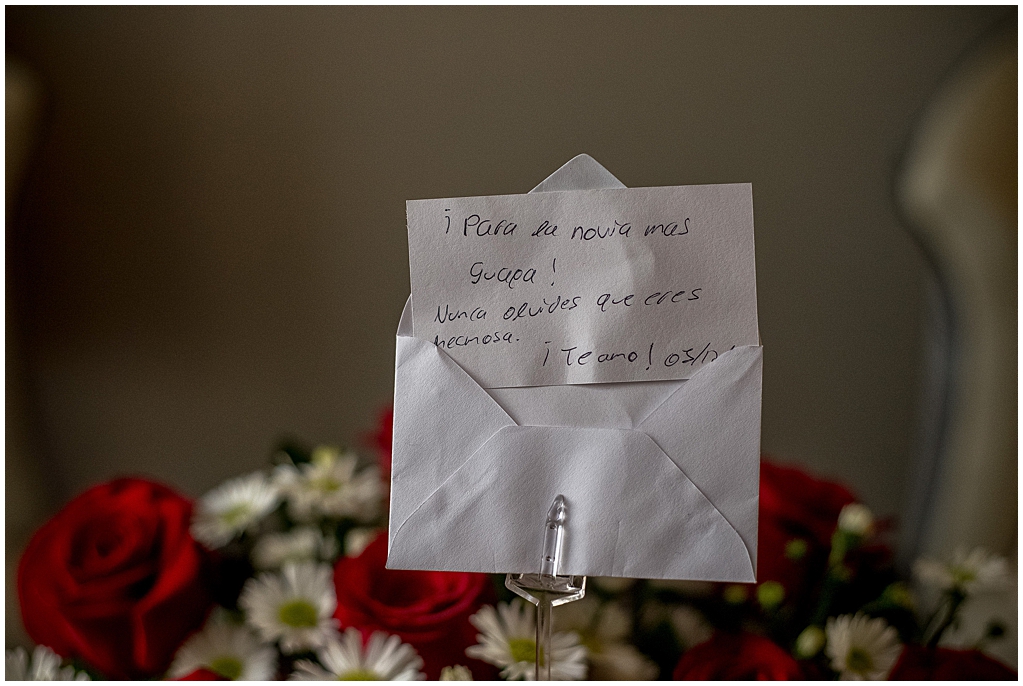 ¡Para la novia mas
Guapa!
Nunca olvides que eres
hermosa.
¡Te amo! 03/12/